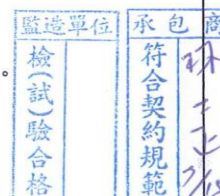 監造單位
檢(試)驗合格
承包商
符合契約規範
。